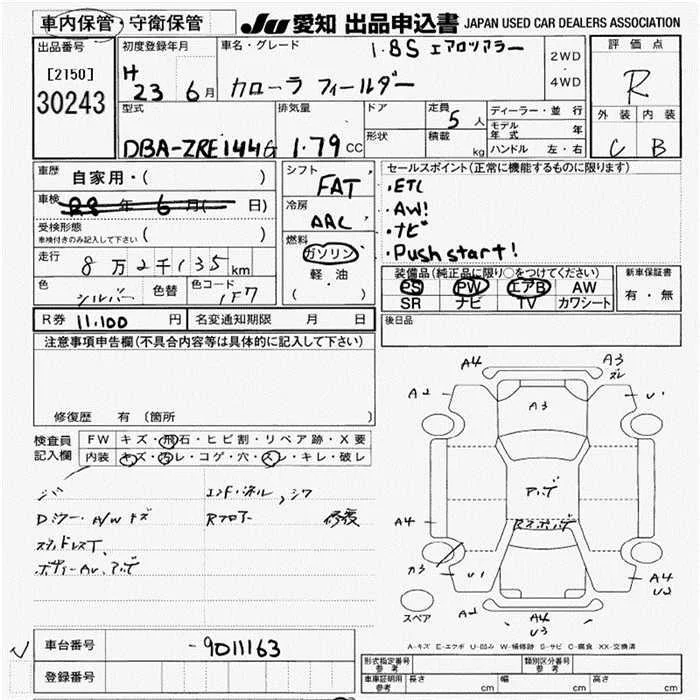 車内保管・守衛保管
JU 愛知 出品申込書 JAPAN USED CAR DEALERS ASSOCIATION
出品番号
[2150]
30243
初度登録年月
H 23 6月
車名・グレード
1.8S エアロツアラー
カローラ フィールダー
2WD
・
4WD
評価点
R
外装 内装
C B
型式
DBA-ZRE144G
排気量
1.79 cc
ドア
形状
定員
5人
積載
kg
ディーラー・並行
モデル年式 年
ハンドル 左・右
車歴
自家用・( )
車検
年 6月( 日)
受検形態
車検付きのみ記入して下さい ( )
走行
8万2千135km
色
シルバー
色替
色コード
1F7
シフト
FAT
冷房
AAC
燃料
ガソリン
軽・油
( )
セールスポイント(正常に機能するものに限ります)
・ETC
・AW!
・ナビ
・Push start!
装備品(純正品に限り○をつけてください)
PS PW エアB AW
SR ナビ TV カワシート
新車保証書
有・無
R券 11,100 円
名変通知期限 月 日
後日品
注意事項申告欄(不具合内容等は具体的に記入して下さい)
修復歴 有 〔箇所 〕
検査員記入欄
FW キズ・飛石・ヒビ割・リペア跡・X要
内装 キズ・汚レ・コゲ・穴・スレ・キレ・破レ
Dミラー・A/W キズ
Rフロアー 修復
A4 A3 ズレ
A2 A3 U1
A4
A3 U1 A4 U2
スペア
A2 A4 U3
A-キズ E-エクボ U-凹み W-補修跡 S-サビ C-腐食 XX-交換済
車台番号 -9011163
登録番号
形式指定番号 参考
類別区分番号 参考
車庫証明用 参考 長さ cm 幅 cm 高さ cm